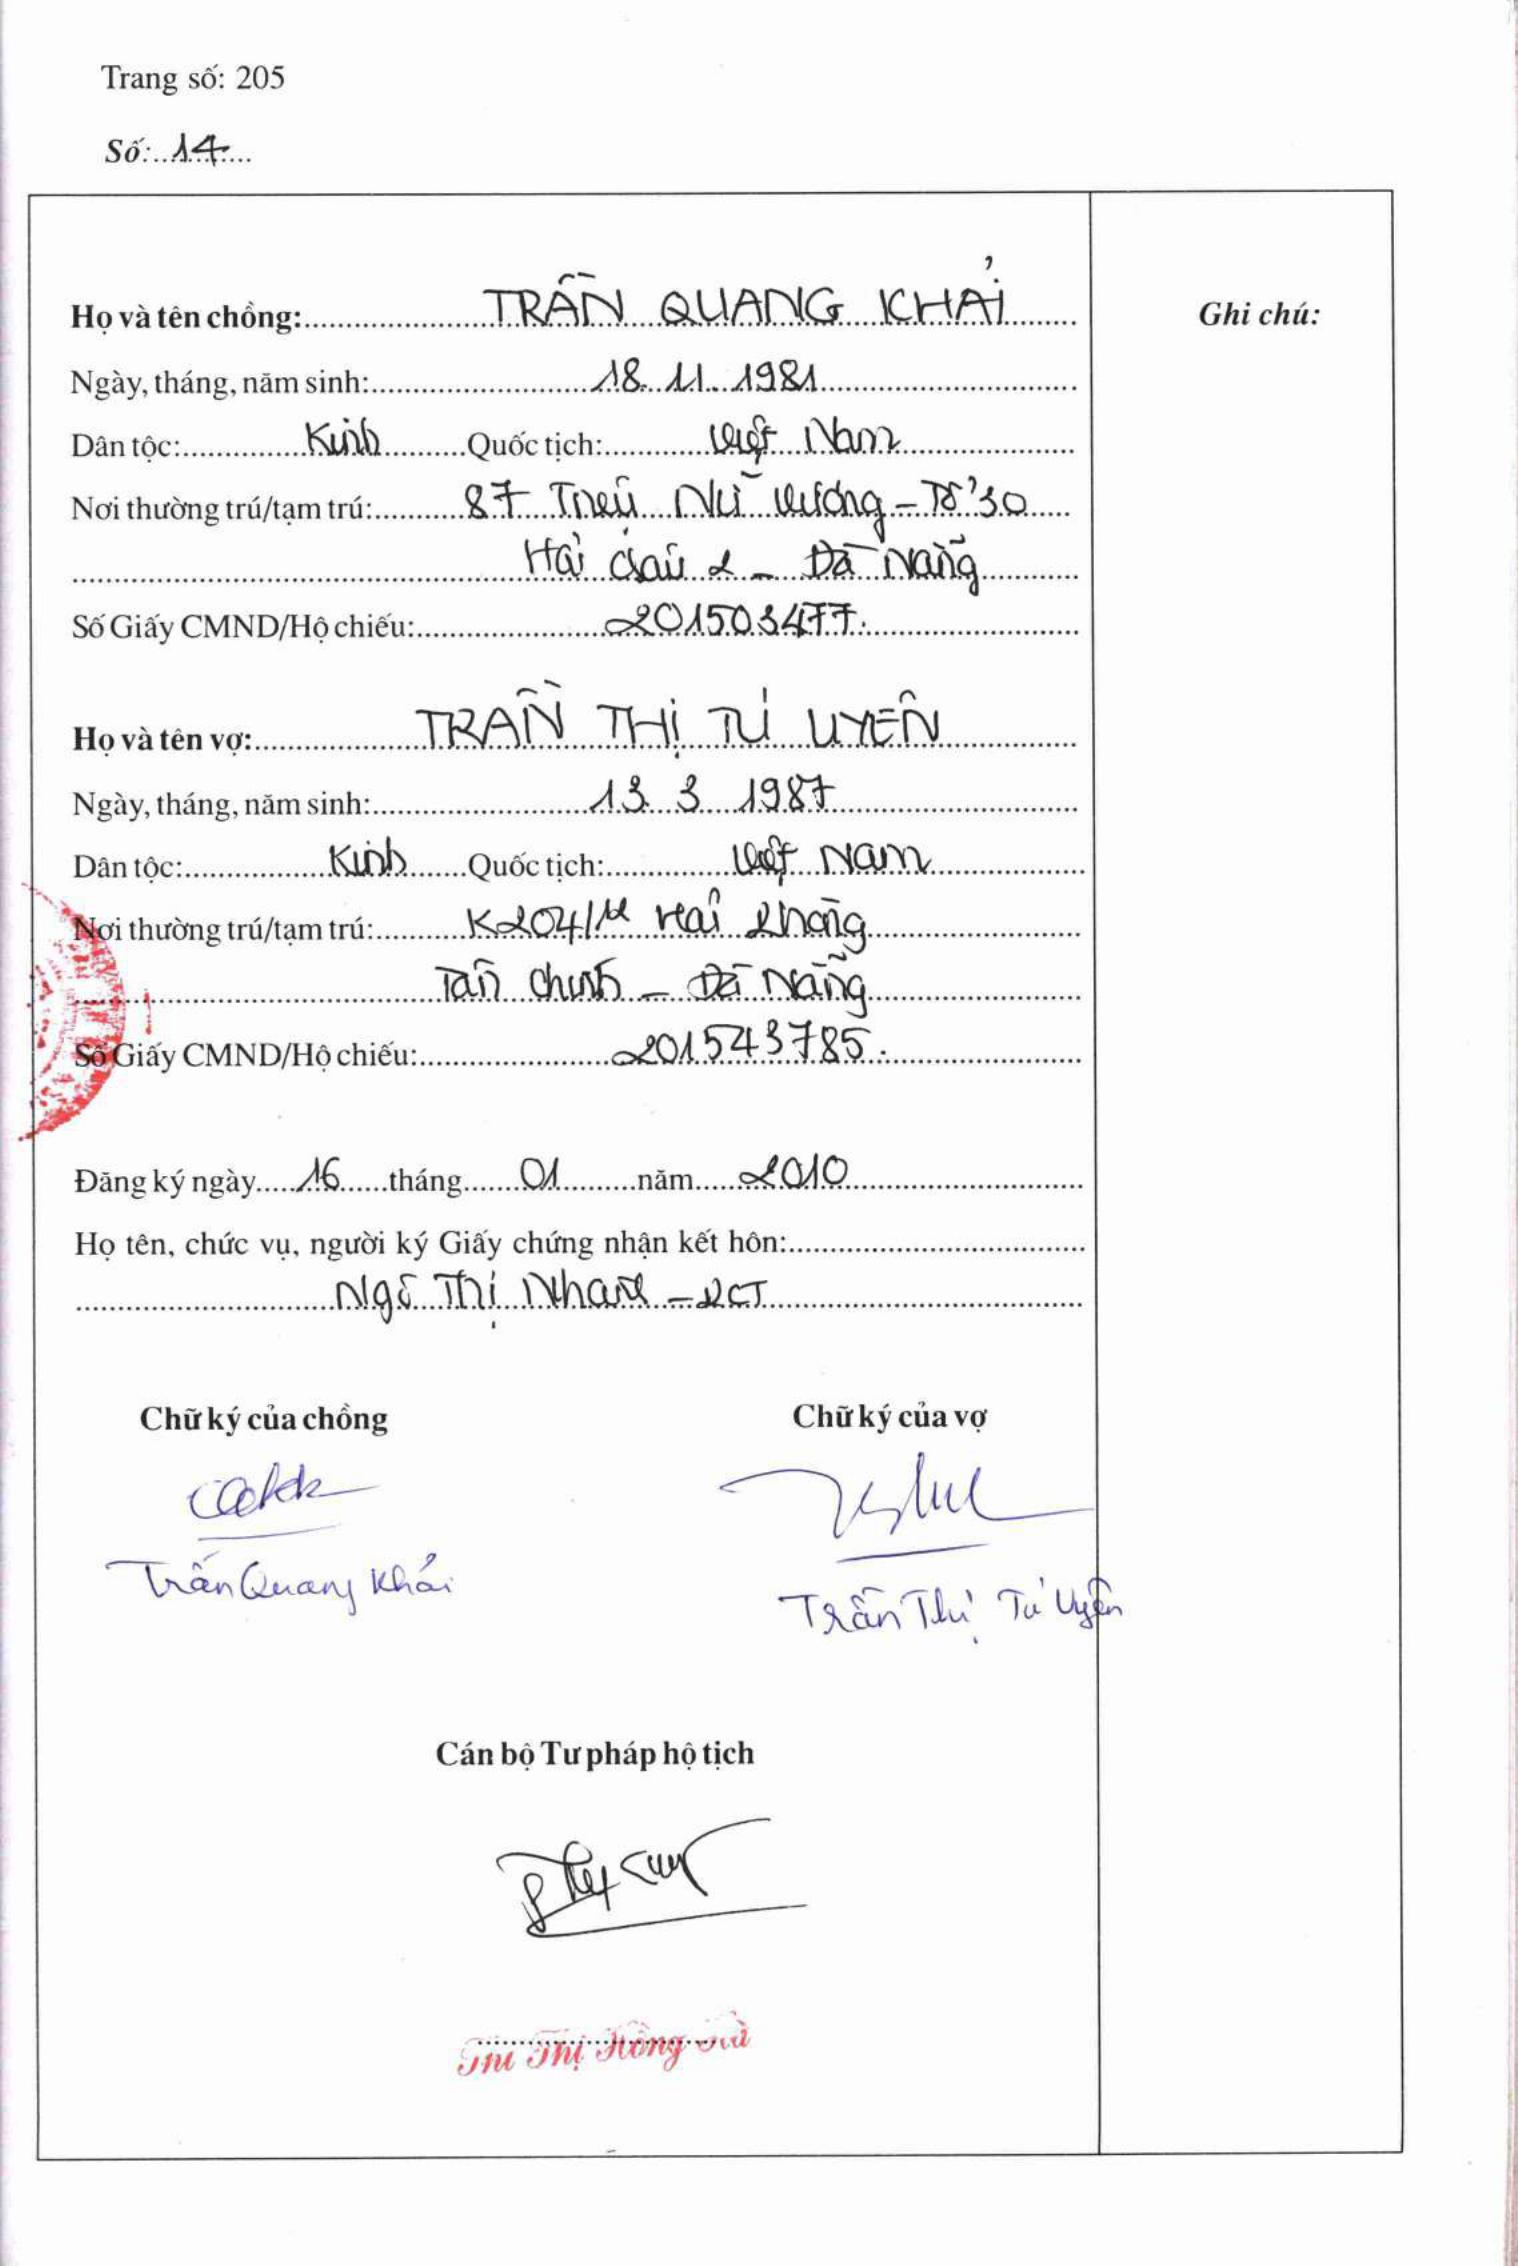 Trang số: 205
Số: 14
Họ và tên chồng: TRẦN QUANG KHẢI
Ghi chú:
Ngày, tháng, năm sinh: 18 11 1981
Dân tộc: Kinh Quốc tịch: Việt Nam
Nơi thường trú/tạm trú: 87 Triệu Nữ Vương - Tổ 30
Hải Châu 2 - Đà Nẵng
Số Giấy CMND/Hộ chiếu: 201503477.
Họ và tên vợ: TRẦN THỊ TÚ UYÊN
Ngày, tháng, năm sinh: 13 3 1987
Dân tộc: Kinh Quốc tịch: Việt Nam
Nơi thường trú/tạm trú: Hải Phòng
Tân Chính - Đà Nẵng
Số Giấy CMND/Hộ chiếu: 201543785.
Đăng ký ngày 16 tháng 01 năm 2010
Họ tên, chức vụ, người ký Giấy chứng nhận kết hôn:
Ngô Thị - PCT
Chữ ký của chồng
Chữ ký của vợ
Trần Quang Khải
Trần Thị Tú Uyên
Cán bộ Tư pháp hộ tịch
Thị Hồng